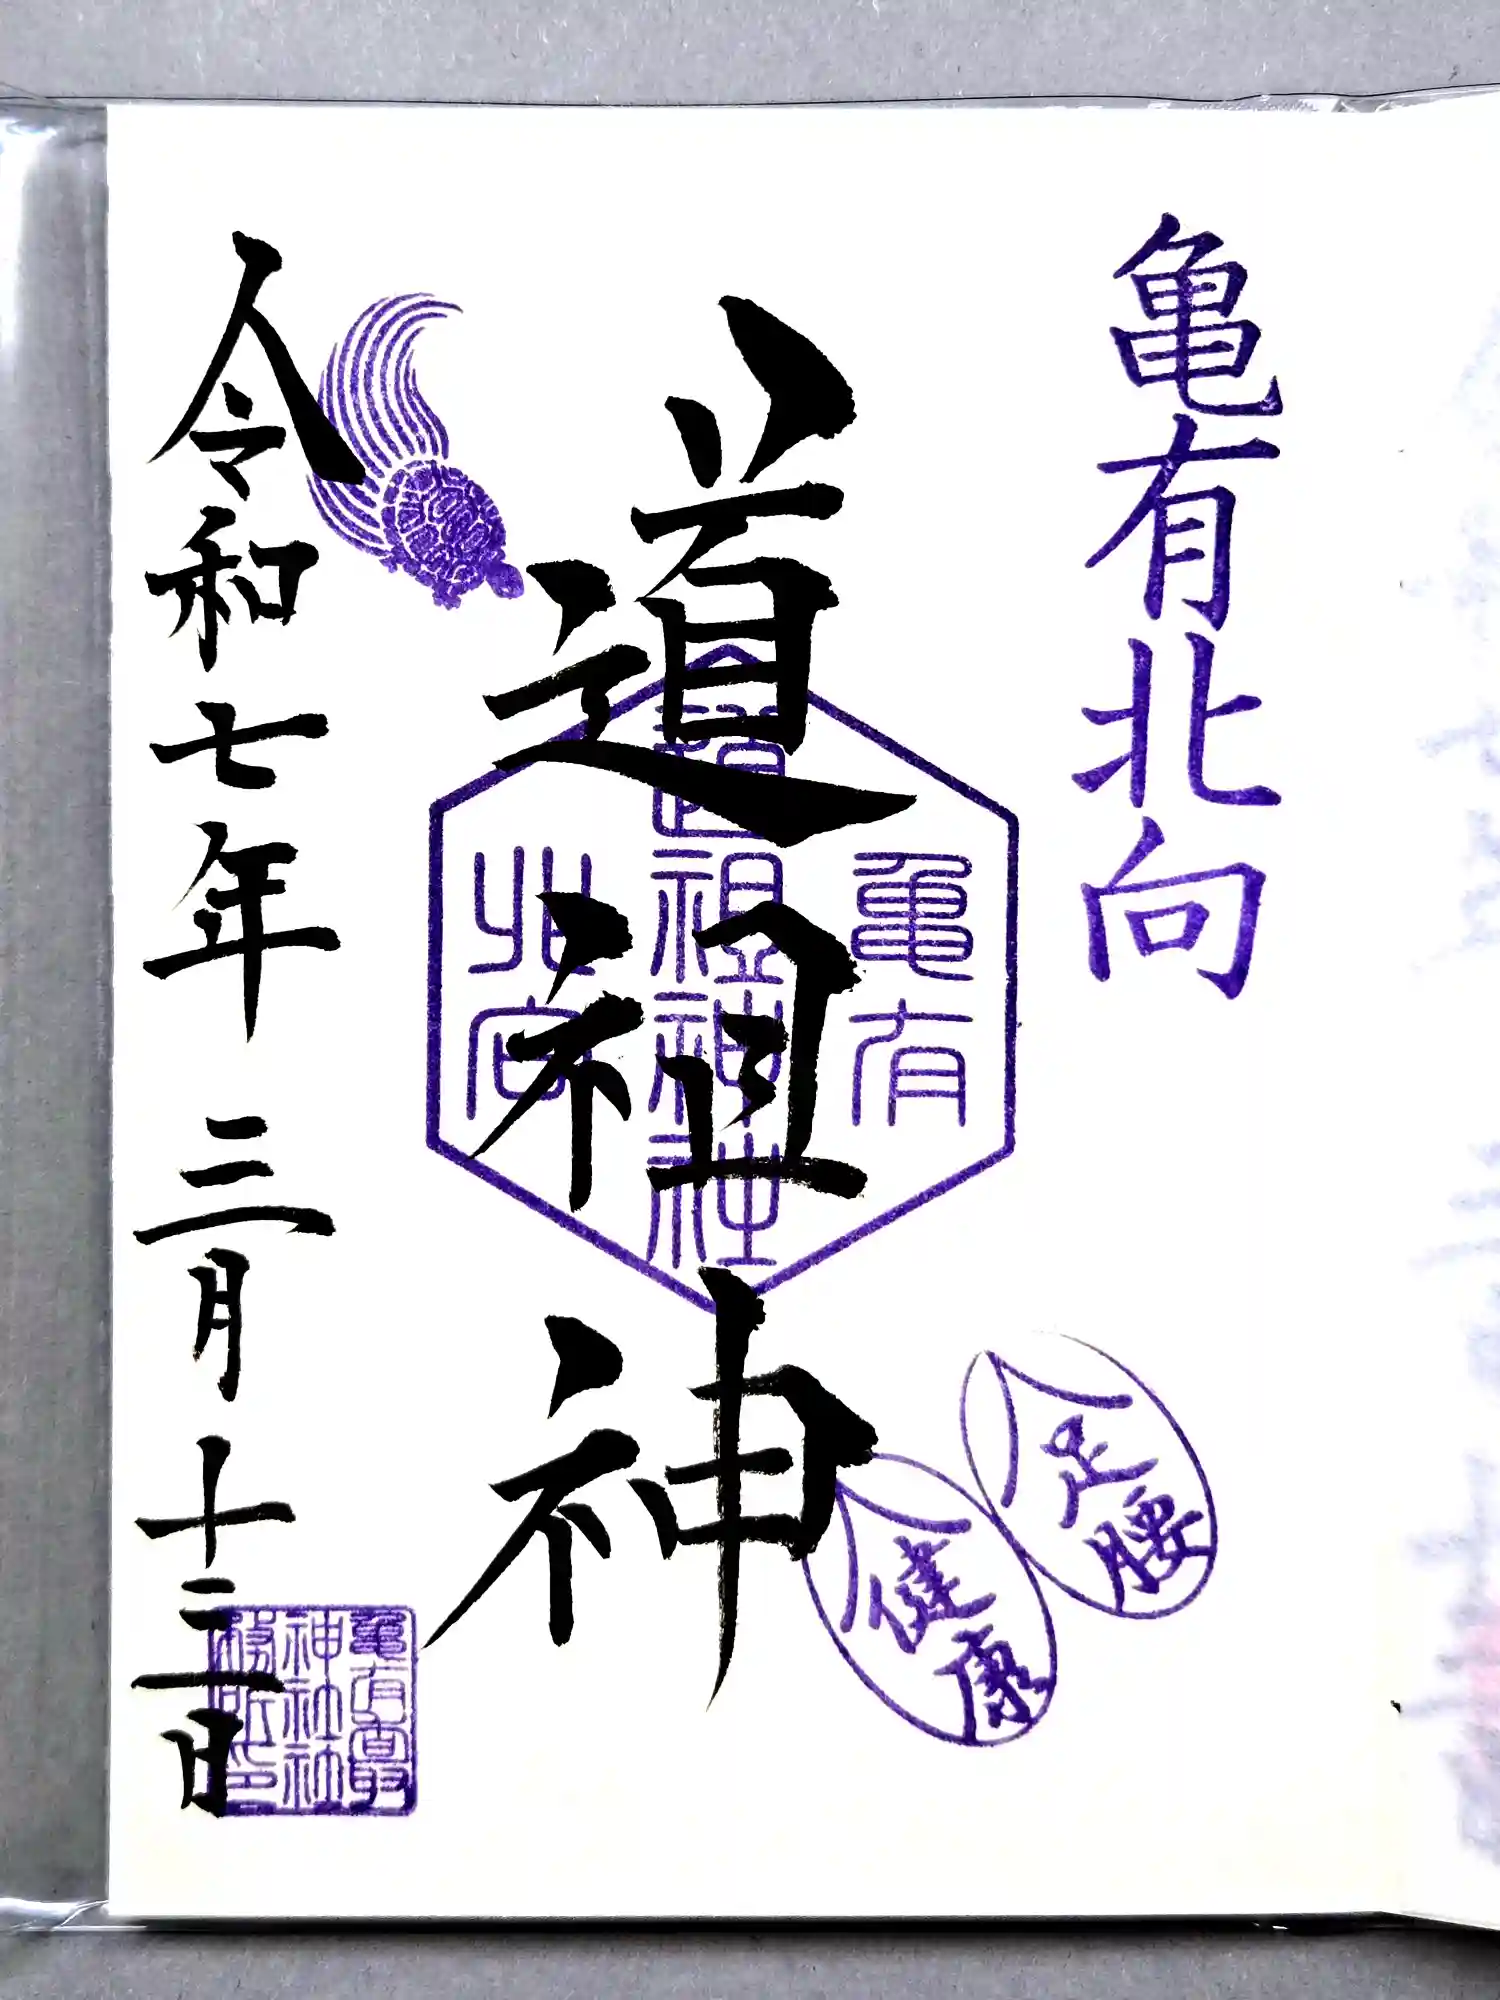 亀有北向
道祖神
令和七年三月十二日
亀有
道祖神社
北宮
足腰
健康
亀有香取
神社社
務所印